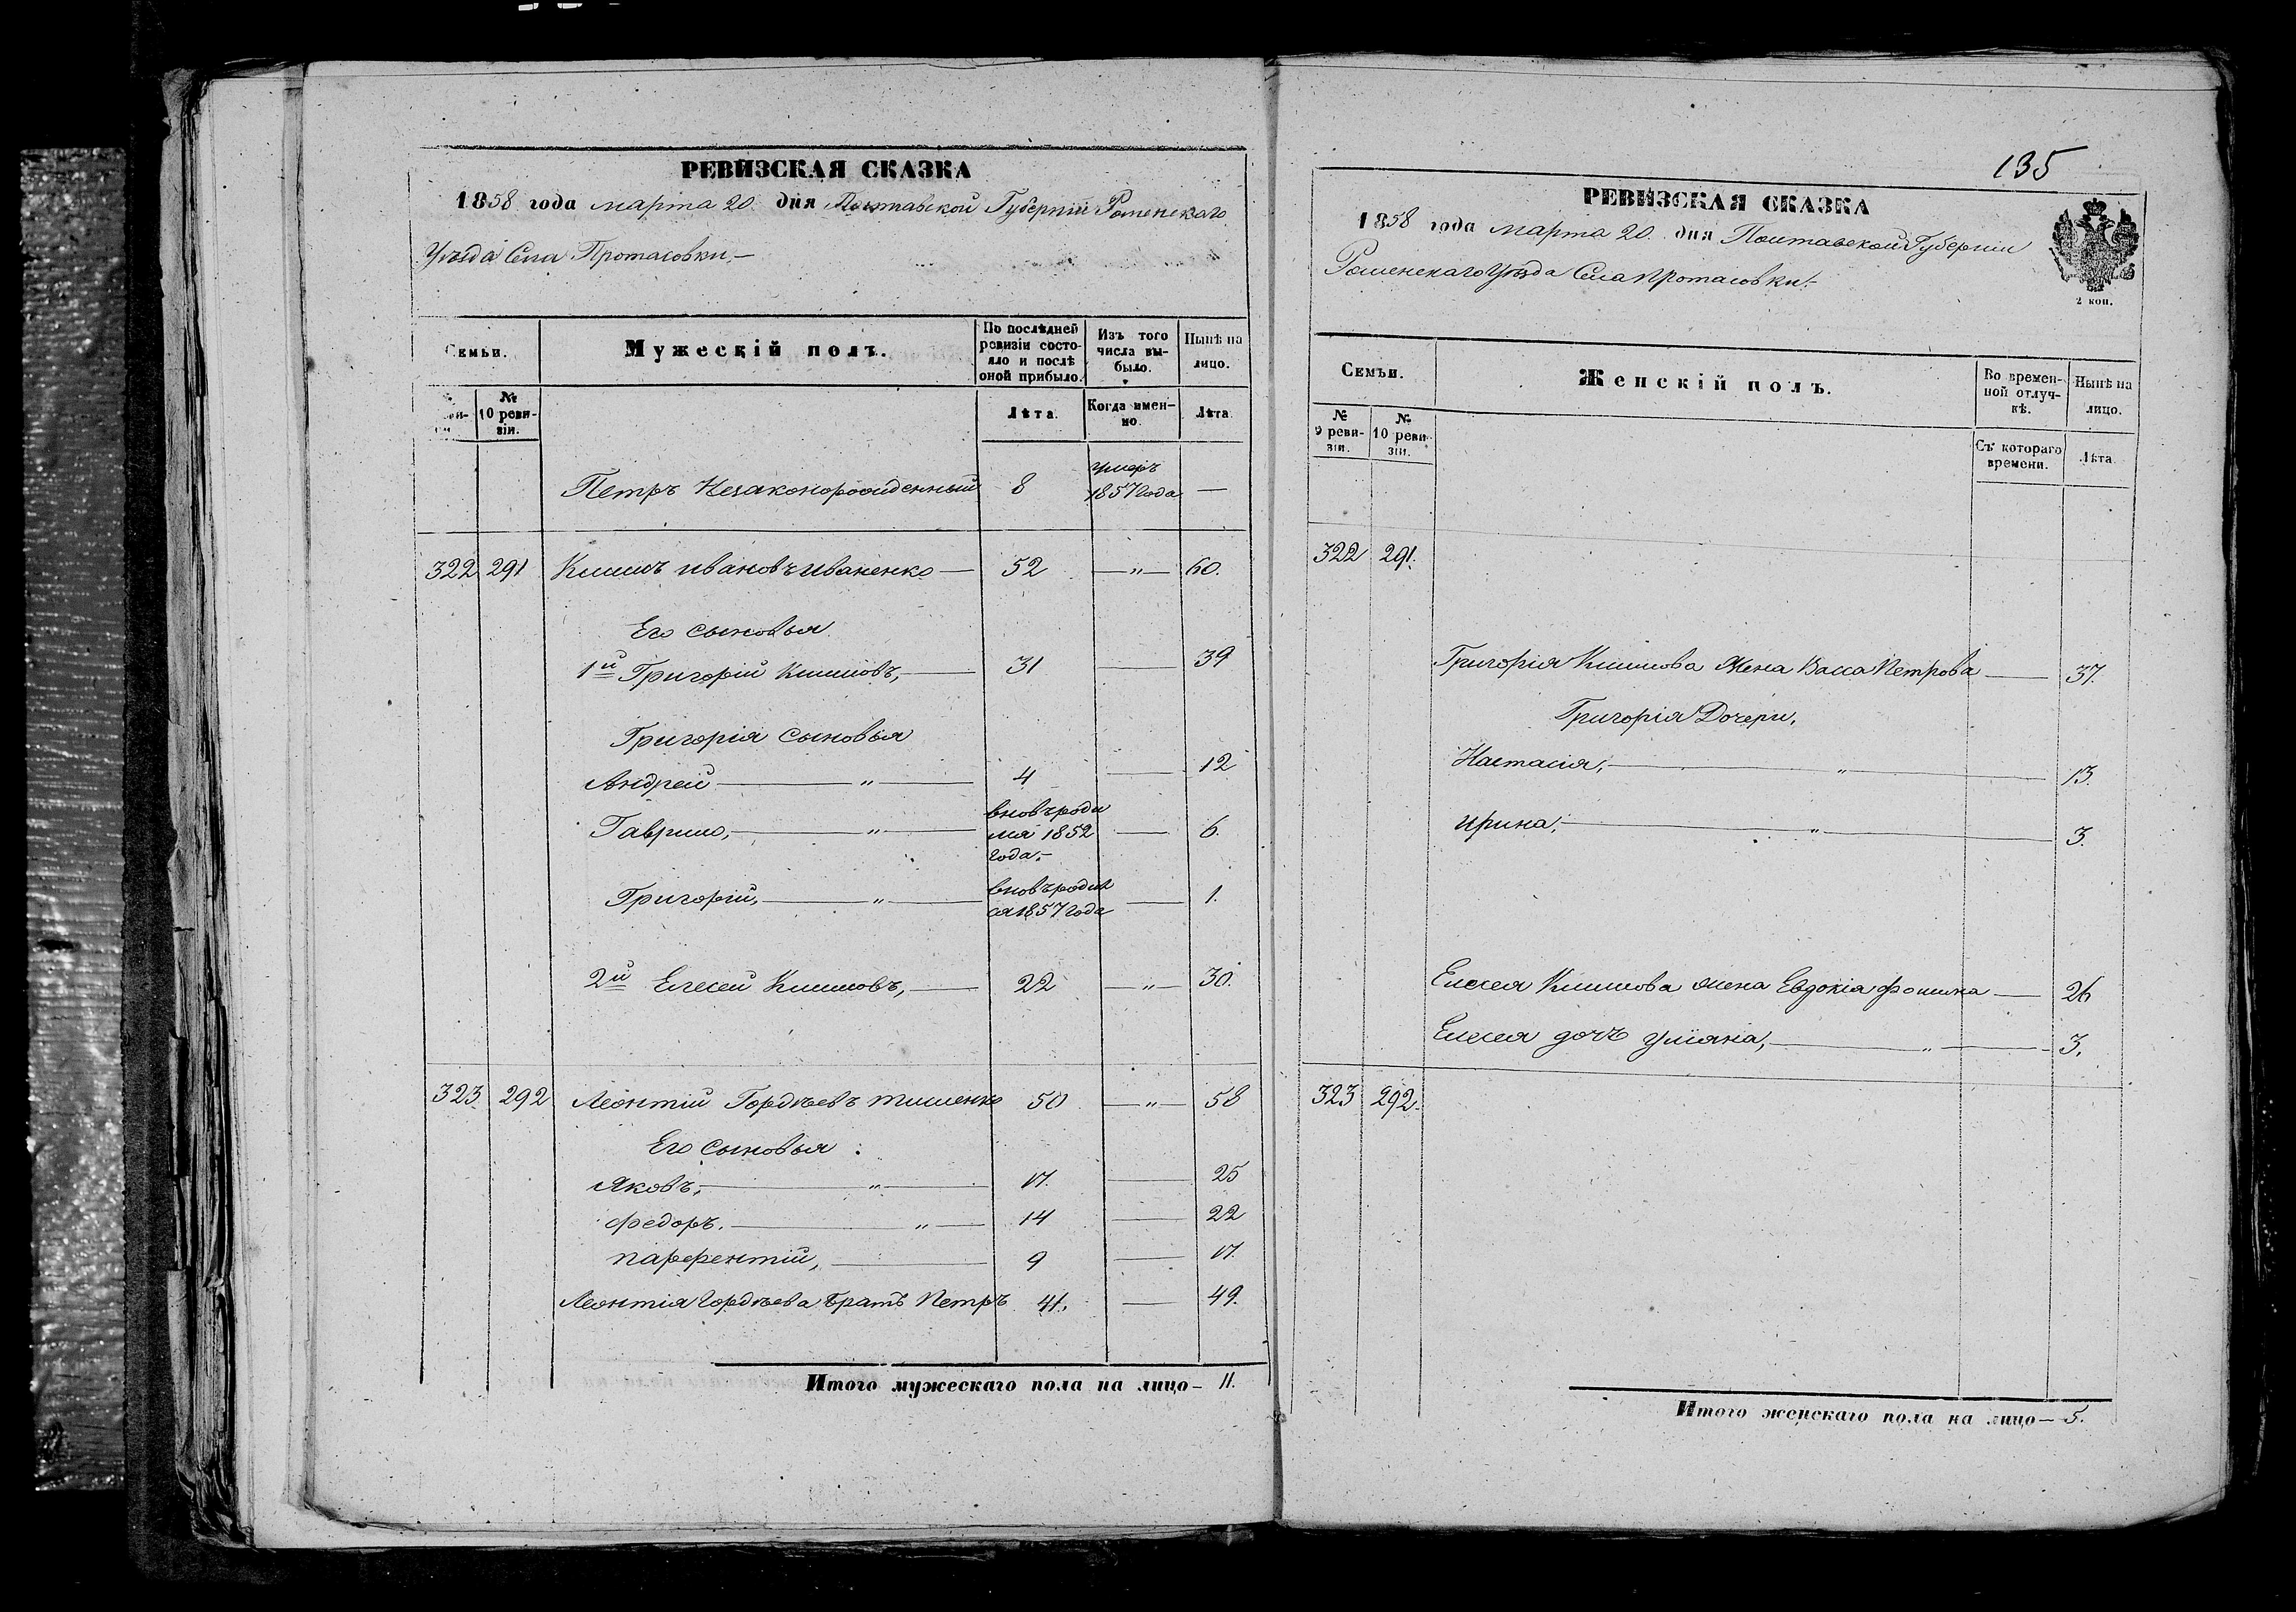 РЕВИЗСКАЯ СКАЗКА
1858 года марта 20 дня Полтавской Губерніи Роменскаго
Уѣзда Села Протасовки.—
Семьи.
Мужескій полъ.
По послѣдней ревизіи состояло и послѣ оной прибыло.
Изъ того числа выбыло.
Нынѣ на лицо.
№ 10 ревизіи.
Лѣта.
Когда именно.
Лѣта.
Петръ Незаконорожденный 8 умеръ 1857 года —
322 291 Климъ Ивановъ Иваненко — 52 — „ — 60.
Его сыновья
1й Григорій Климовъ, — 31 — 39
Григорія сыновья
Андрей — „ — 4 — 12
Гаврило, — „ — вновь роди
лся 1852 — 6.
года.—
Григорій, — „ — вновь родил
ся 1857 года — 1.
2й Елисей Климовъ, — 22 — „ — 30.
323 292 Леонтій Гордѣевъ Тишенко 50 — „ — 58
Его сыновья :
Яковъ, — „ — 17. — 25
Федоръ. — „ — 14 — 22
Парфентій, — 9 — 17.
Леонтія Гордѣева братъ Петръ 41. — 49.
Итого мужескаго пола на лицо — 11.
135
РЕВИЗСКАЯ СКАЗКА
1858 года марта 20. дня Полтавской Губерніи
Роменскаго Уѣзда Села Протасовки.—
2 коп.
Семьи.
Женскій полъ.
Во временной отлучкѣ.
Нынѣ на лицо.
№ 9 ревизіи.
№ 10 ревизіи.
Съ котораго времени.
Лѣта.
322 291.
Григорія Климова жена Васса Петрова — 37.
Григорія Дочери,
Настасія, — „ — 13.
Ирина, — „ — 3.
Елисея Климова жена Евдокія Фомина — 26
Елисея дочь Уліяна, — „ — 3.
323 292.
Итого женскаго пола на лицо — 5.